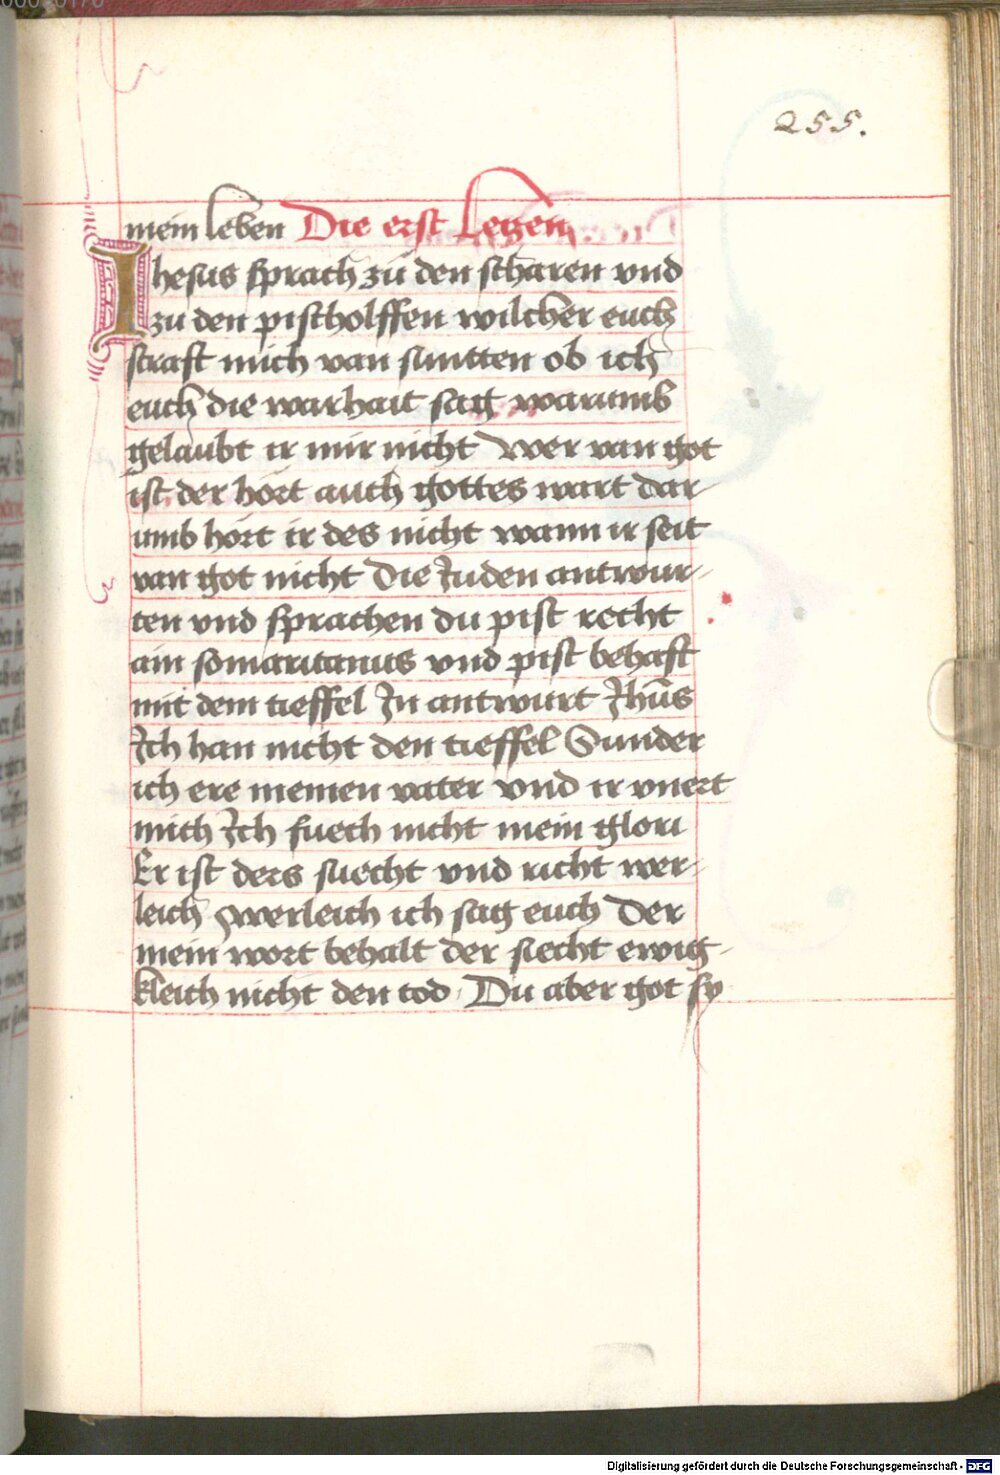 255.
mein leben Die erst Letzen
Ihesus sprach zu den scharen vnd
zu den pischolffen wilcher euch
straft mich van suntten ob ich
euch die warhait sag warumb
gelaubt ir mir nicht Wer van got
ist der hört auch gottes wart dar
umb hört ir des nicht wann ir seit
van got nicht Die Juden antwur-
ten vnd sprachen du pist recht
ain somaritanus vnd pist behaft
mit dem tieffel In antwurt Jhus
Ich han nicht den tieffel Sunder
ich ere meinen vater vnd ir vnert
mich Ich suech nicht mein glori
Er ist ders suecht vnd richt wer-
leich werleich ich sag euch Der
mein wort behalt der siecht ewig-
kleich nicht den tod Du aber got sy
Digitalisierung gefördert durch die Deutsche Forschungsgemeinschaft - DFG